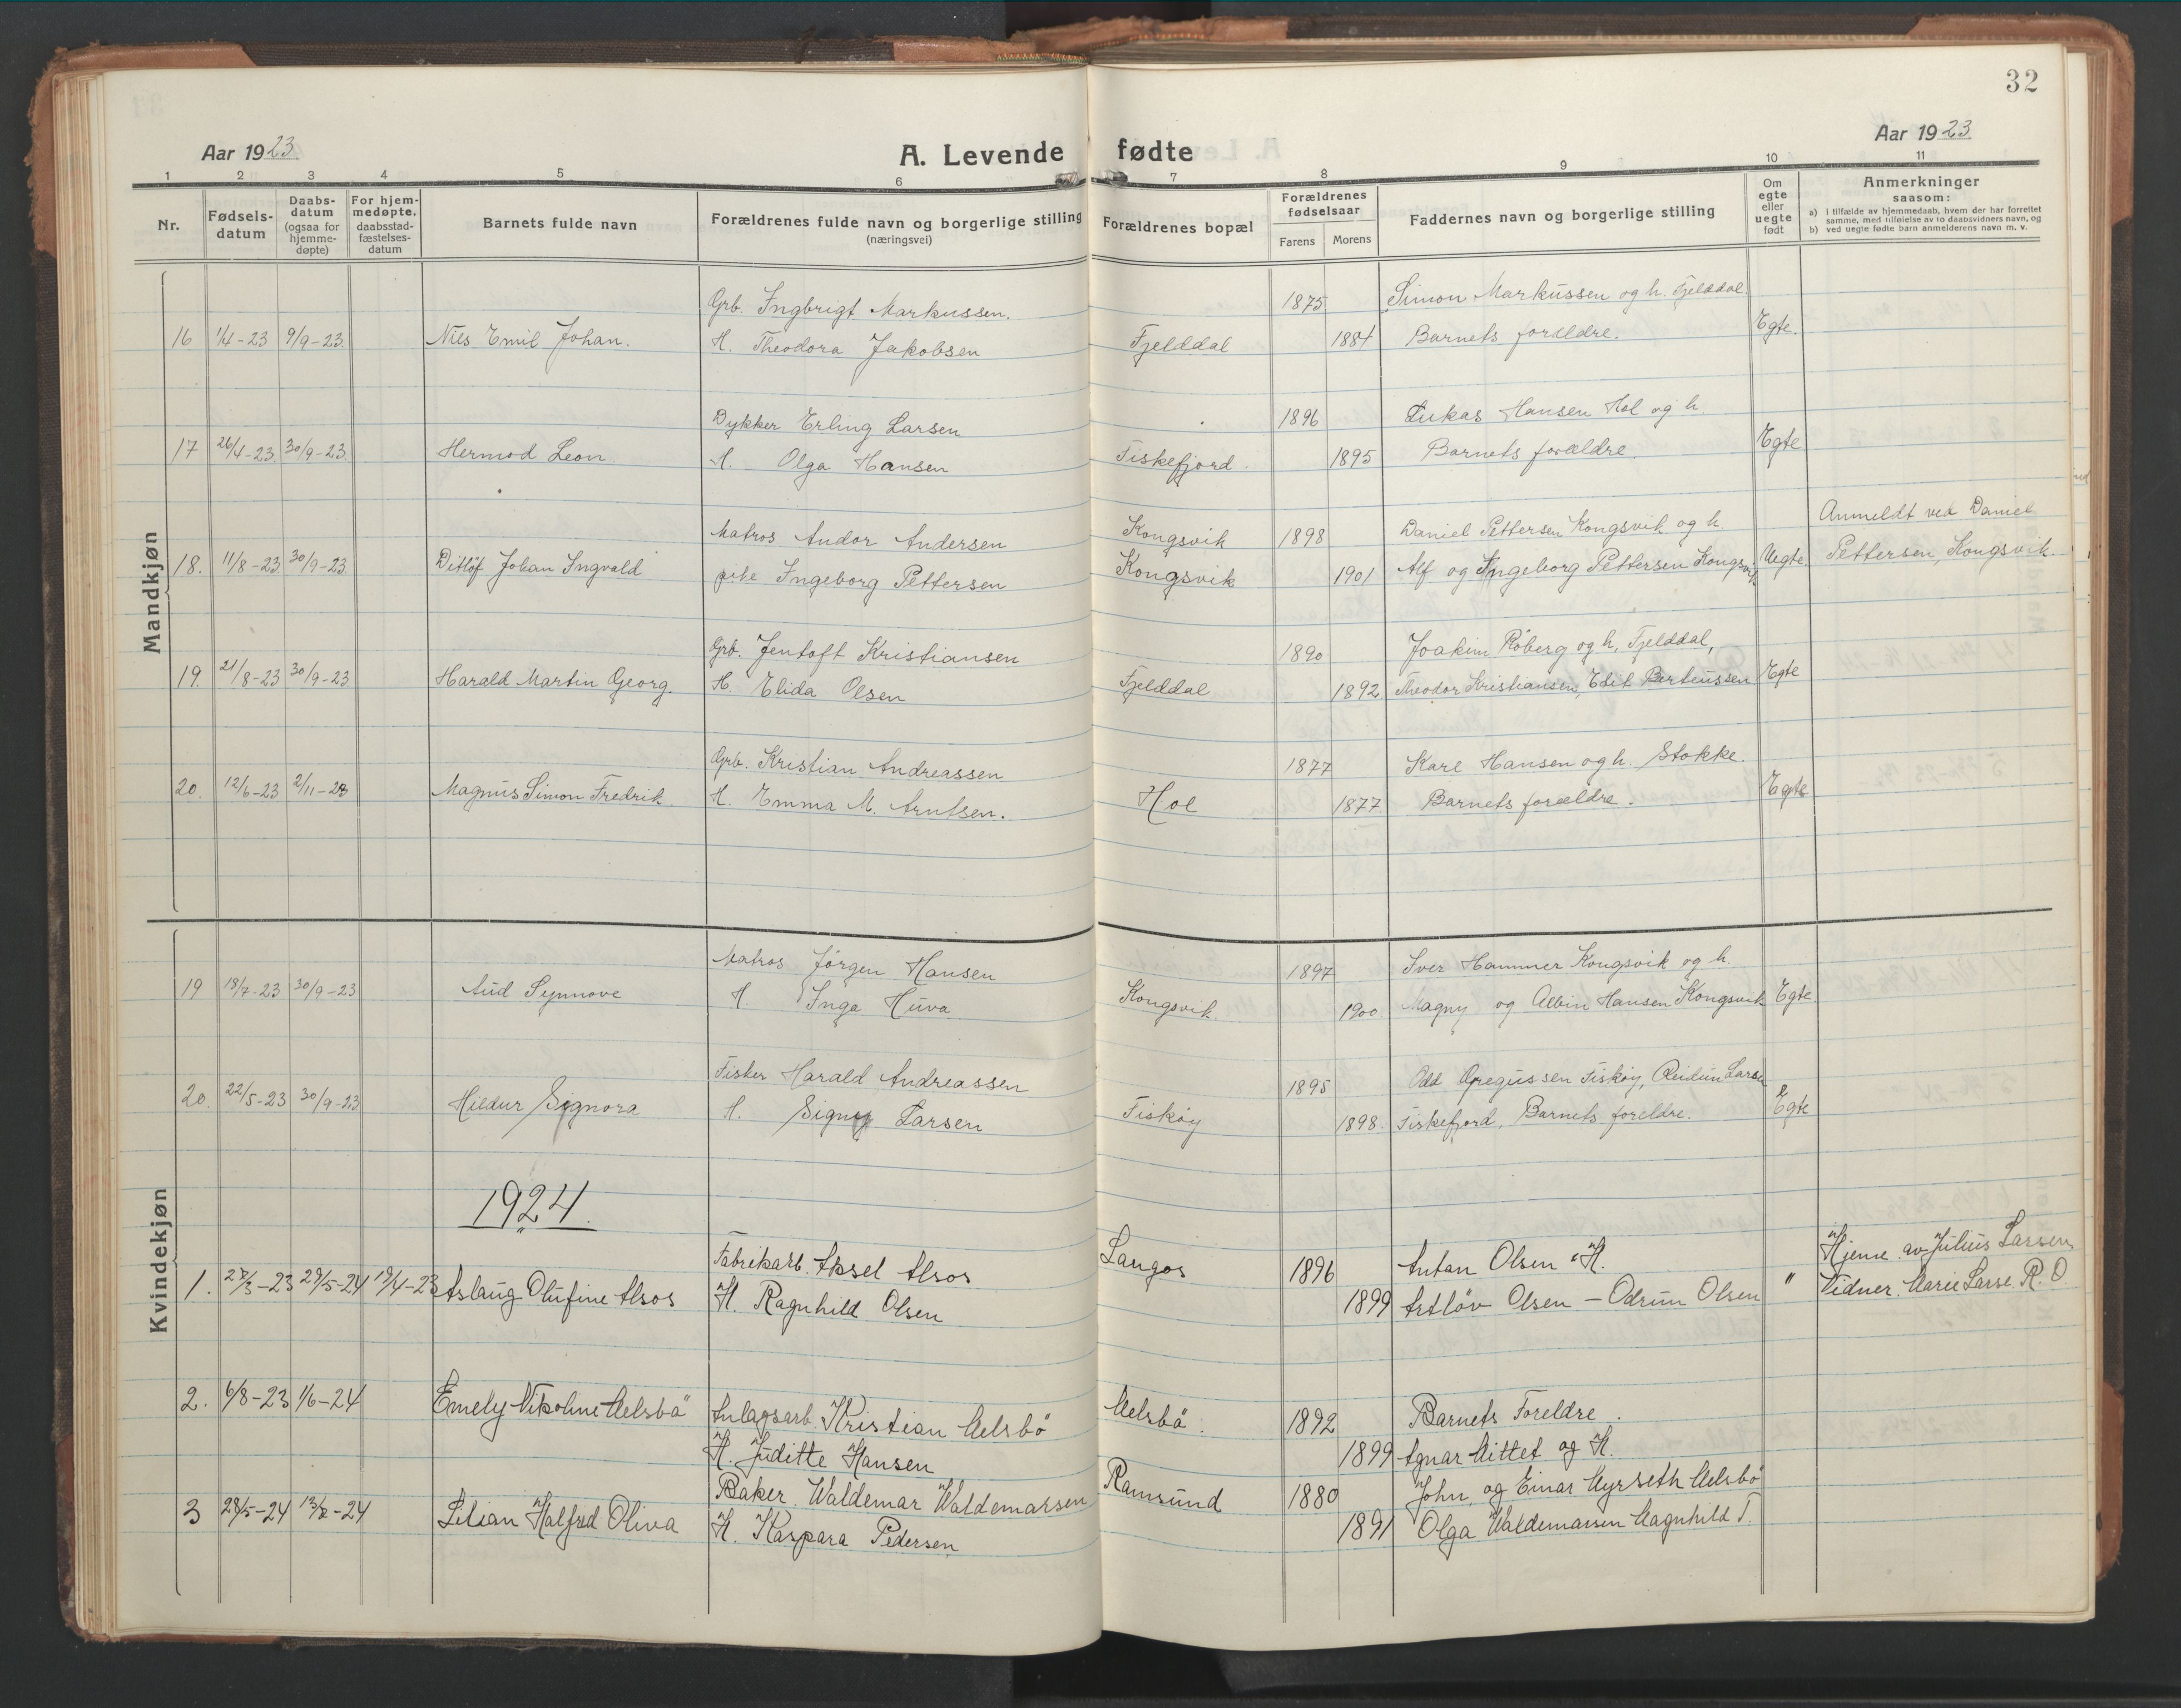 32
Aar 1923
A. Levende fødte
Aar 1923
1 2 3 4 5 6 7 8 9 10 11
Nr.
Fødsels-
datum
Daabs-
datum
(ogsaa for
hjemme-
døpte)
For hjem-
medøpte,
daabsstad-
fæstelses-
datum
Barnets fulde navn
Forældrenes fulde navn og borgerlige stilling
(næringsvei)
Forældrenes bopæl
Forældrenes
fødselsaar
Farens Morens
Faddernes navn og borgerlige stilling
Om
egte
eller
uegte
født
Anmerkninger
saasom:
a) i tilfælde av hjemmedaab, hvem der har forrettet
samme, med tilføielse av to daabsvidners navn, og
b) ved uegte fødte barn anmelderens navn m. v.
Mandkjøn
Grb. Ingbrigt Markussen. 1875 Simon Markussen og h. Fjelddal.
16 1/4-23 9/9-23 Nils Emil Johan. H. Theodora Jakobsen Fjelddal 1884 Barnets forældre. Egte.
Dykker Erling Larsen 1896 Lukas Hansen Hol og h.
17 26/4-23 30/9-23 Hermod Leon H. Olga Hansen Fiskefjord 1895 Barnets forældre. Egte
Matros Andor Andersen Kongsvik 1898 Daniel Pettersen Kongsvik og h. Anmeldt ved Daniel
18. 11/8-23 30/9-23 Ditlöf Johan Ingvald pike Ingeborg Pettersen Kongsvik 1901 Alf og Ingeborg Pettersen Kongsvik Uegte. Pettersen, Kongsvik.
Grb. Jentoft Kristiansen 1890 Joakim Röberg og h, Fjelddal,
19. 21/8-23 30/9-23 Harald Martin Georg. H. Elida Olsen Fjelddal 1892 Theodor Kristiansen, Edit Berteussen Egte
Grb. Kristian Andreassen 1877 Karl Hansen og h. Stokke.
20. 12/6-23 2/11-23 Magnus Simon Fredrik. H. Emma M. Arntsen. Hol 1877 Barnets forældre. Egte
Kvindekjøn
Matros Jörgen Hansen 1897 Iver Hammer Kongsvik og h.
19 18/7-23 30/9-23 Aud Synnove H. Inga Huva Kongsvik 1900 Magny og Albin Hansen Kongsvik Egte
Fisker Harald Andreassen 1895 Odd Gregussen Fiskøy, Reidun Larsen
20. 22/5-23 30/9-23 Hildur Signora H. Signy Larsen Fiskøy 1898 Fiskefjord, Barnets foreldre. Egte
1924.
Fabrikarb. Aksel Alsos Langos 1896 Antan Olsen " H. Hjeme av Julius Larsen
1. /3-23 29/5-24 19/4-23 Aslaug Olufine Alsos H. Ragnhild Olsen 1899 Artløv Olsen - Odrun Olsen " Vidner. Marie Larse R. O
2. 6/8-23 1/6-24 Emely Nikoline Melsbö Anlagsarb. Kristian Melsbö Melsbö. 1892 Barnets Foreldre.
H. Juditte Hansen 1899 Agnar Mittet og H.
Baker. Waldemar Waldemarsen Ramsund 1880 John, og Einar Myrseth Melsbö
3 28/5-24 13/-24 Lilian Halfrid Oliva H. Kaspara Pedersen 1891 Olga Waldemarsen Magnhild T.